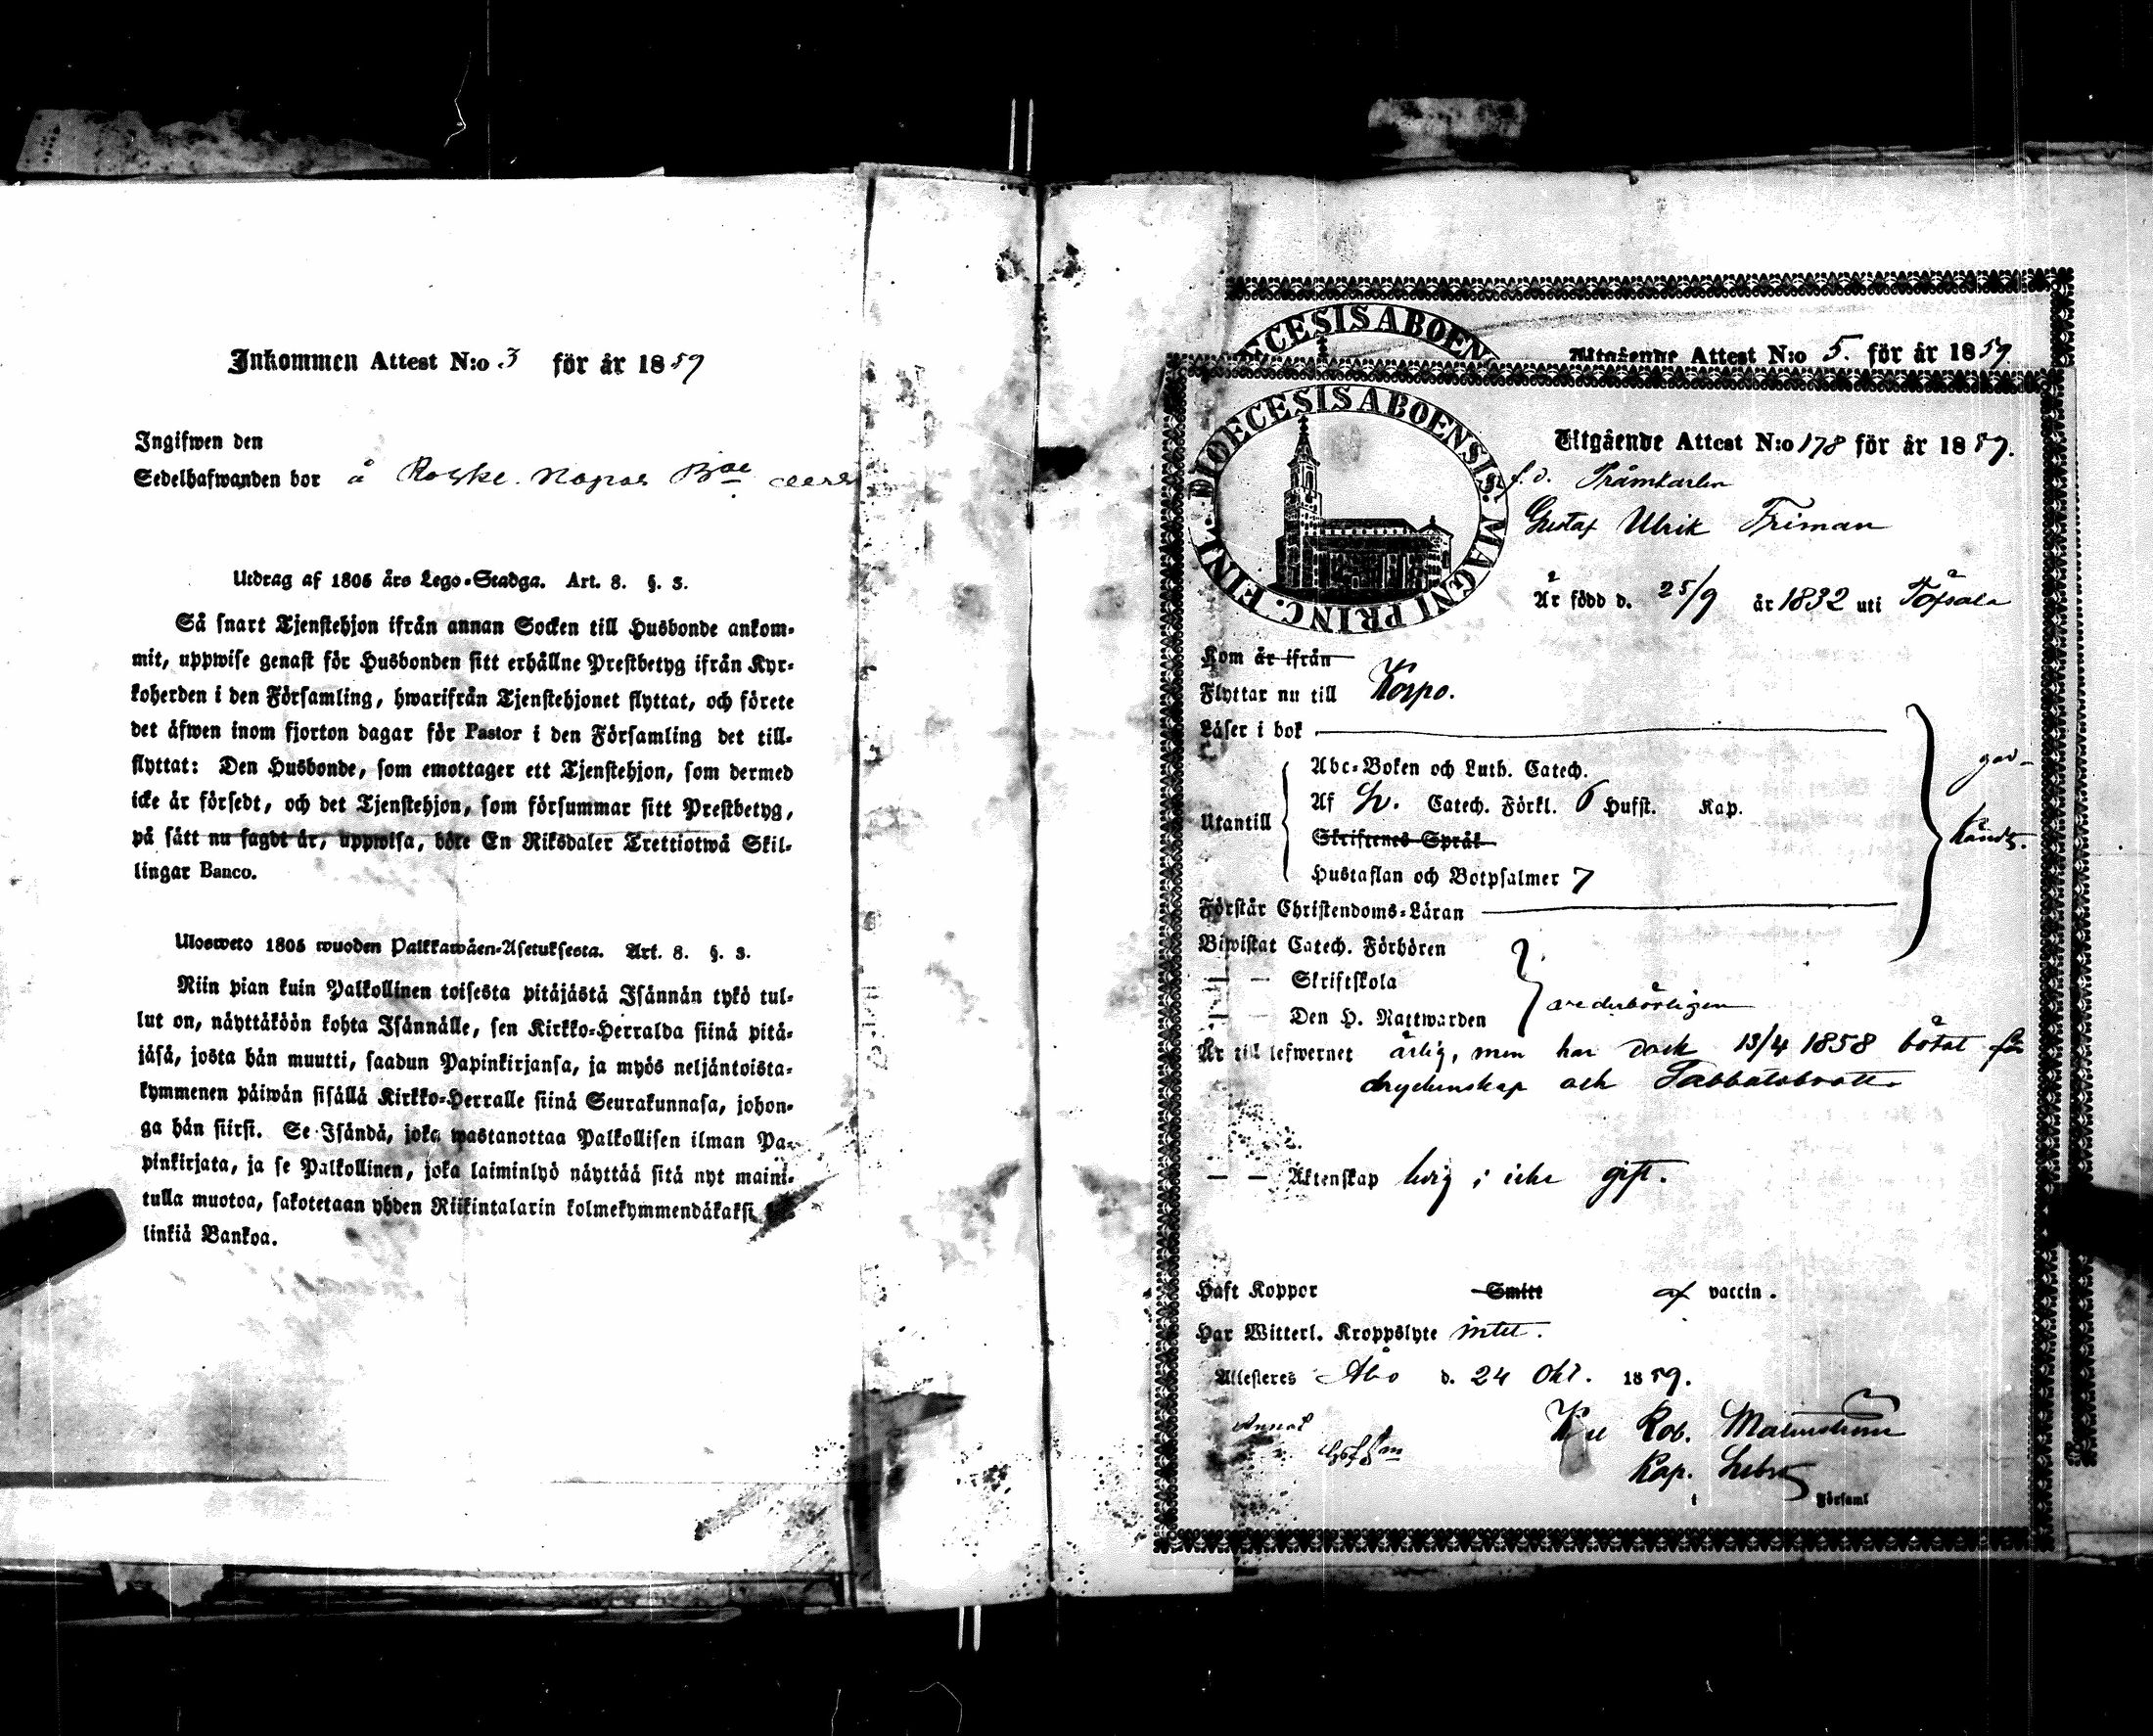 Inkommen Attest N:o 3 för år 1859
Ingifwen den
Sedelhafwanden bor å
Utdrag af 1805 års Lego-Stadga. Art. 8. §. 3.
Så snart Tjenstehjon ifrån annan Socken till Husbonde ankom-
mit, uppwise genast för Husbonden sitt erhållne Prestbetyg ifrån Kyr-
koherden i den Församling, hwarifrån Tjenstehjonet flyttat, och förete
det äfwen inom fjorton dagar för Pastor i den Församling det till-
flyttat: Den Husbonde, som emottager ett Tjenstehjon, som dermed
icke är försedt, och det Tjenstehjon, som försummar sitt Prestbetyg,
på sätt nu sagdt är, uppwisa, böte En Riksdaler Trettiotwå Skil-
lingar Banco.
Ulosweto 1805 wuoden Palkkawäen-Asetuksesta. Art. 8. §. 3.
Niin pian kuin Palkollinen toisesta pitäjästä Isännän tykö tul-
lut on, näyttäköön kohta Isännälle, sen Kirkko-Herralda siinä pitä-
jäsä, josta hän muutti, saadun Papinkirjansa, ja myös neljäntoista-
kymmenen päiwän sisällä Kirkko-Herralle siinä Seurakunnasa, johon-
ga hän siirsi. Se Isändä, joka wastanottaa Palkollisen ilman Pa-
pinkirjata, ja se Palkollinen, joka laiminlyö näyttää sitä nyt maini-
tulla muotoa, sakotetaan yhden Riikintalarin kolmekymmendäkaksi
linkiä Bankoa.
DIOECESIS ABOEN
Utgående Attest N:o 5. för år 1859
DIOECESIS ABOENSIS. MAGNI PRINC. FINL.
Utgående Attest N:o 178 för år 1859.
f. d. Pråmkarlen
Gustaf Ulrik Friman
Är född d. 25/9 år 1832 uti Töfsala
Kom är ifrån
Flyttar nu till Korpo.
Läser i bok
Abc-Boken och Luth. Catech.
Utantill
Af Sv. Catech. Förkl. 6 Hufst. Kap.
Skriftenes Språk
Hustaflan och Botpsalmer 7
god-
känds.
Förstår Christendoms-Läran
Biwistat Catech. Förhören
— — Skriftskola
— — Den H. Nattwarden
vederbörligen
Är till lefwernet ärlig, men har dock 13/4 1858 bötat för
dryckenskap och Sabbatsbrott.
— — Äktenskap ledig; icke gift.
Haft Koppor Smitt af vaccin.
Har Witterl. Kroppslyte intet.
Attesteras Åbo d. 24 Okt. 1859.
Rob. Malmström
Kap.
i Församl